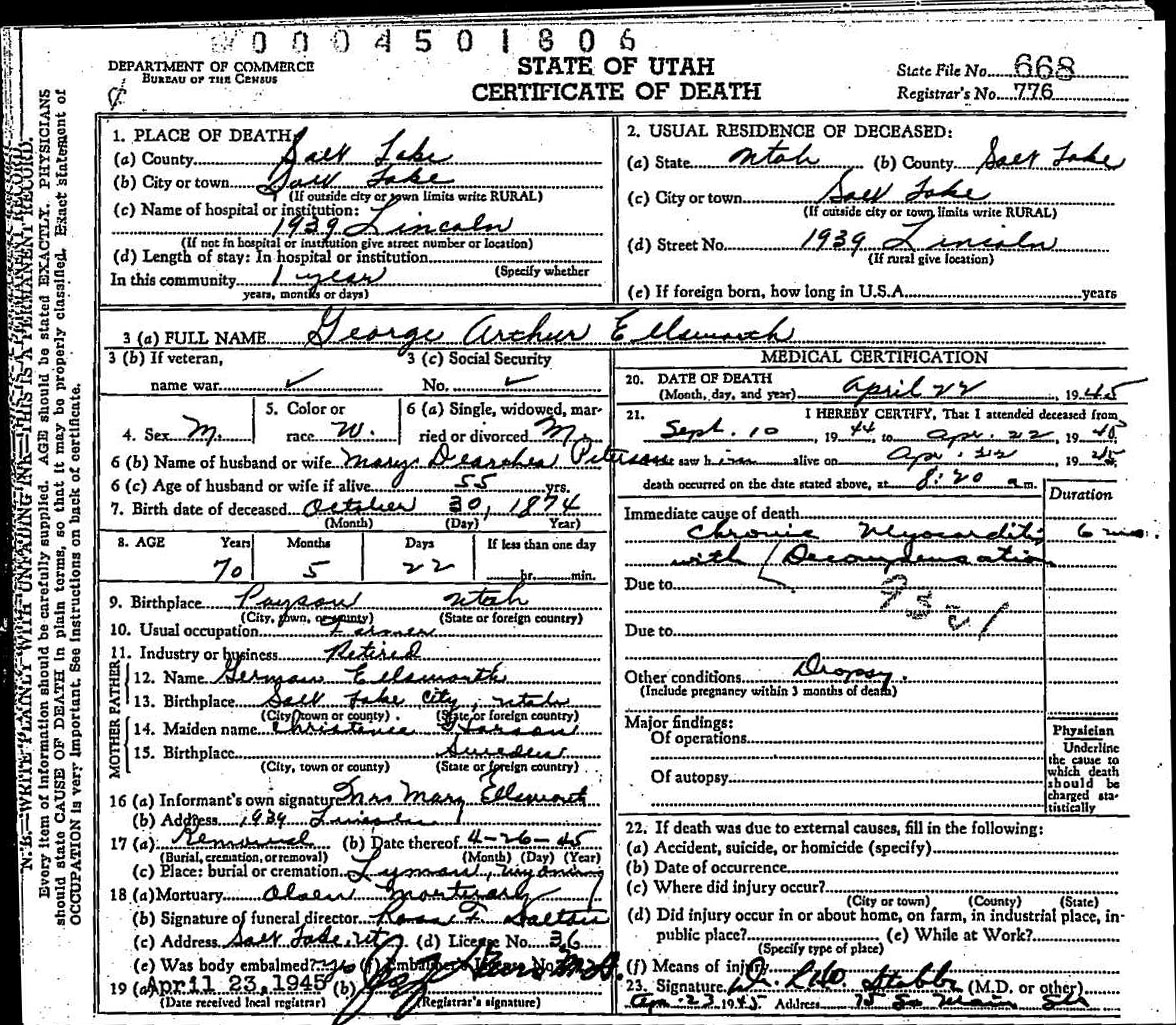 0004501806
DEPARTMENT OF COMMERCE
BUREAU OF THE CENSUS
STATE OF UTAH
CERTIFICATE OF DEATH
State File No. 668
Registrar's No. 776
N. B.—WRITE PLAINLY WITH UNFADING INK—THIS IS A PERMANENT RECORD.
Every item of information should be carefully supplied. AGE should be stated EXACTLY. PHYSICIANS
should state CAUSE OF DEATH in plain terms, so that it may be properly classified. Exact statement of
OCCUPATION is very important. See instructions on back of certificate.
1. PLACE OF DEATH:
(a) County Salt Lake
(b) City or town Salt Lake
(If outside city or town limits write RURAL)
(c) Name of hospital or institution:
1939 Lincoln
(If not in hospital or institution give street number or location)
(d) Length of stay: In hospital or institution
(Specify whether
In this community 1 year
years, months or days)
2. USUAL RESIDENCE OF DECEASED:
(a) State Utah (b) County Salt Lake
(c) City or town Salt Lake
(If outside city or town limits write RURAL)
(d) Street No. 1939 Lincoln
(If rural give location)
(e) If foreign born, how long in U.S.A. years
3 (a) FULL NAME George Arthur Ellsworth
3 (b) If veteran,
name war ✓
3 (c) Social Security
No. ✓
4. Sex M.
5. Color or
race W.
6 (a) Single, widowed, mar-
ried or divorced M.
6 (b) Name of husband or wife Mary Peterson
6 (c) Age of husband or wife if alive 55 yrs.
7. Birth date of deceased October 30, 1874
(Month) (Day) Year)
8. AGE Years Months Days If less than one day
70 5 22 hr. min.
9. Birthplace Payson Utah
(City, town, or county) (State or foreign country)
10. Usual occupation Farmer
11. Industry or business Retired
FATHER
12. Name German Ellsworth
13. Birthplace Salt Lake City, Utah
(City town or county) (State or foreign country)
MOTHER
14. Maiden name Larson
15. Birthplace Sweden
(City, town or county) (State or foreign country)
16 (a) Informant's own signature Mrs Mary Ellsworth
(b) Address 1939 Lincoln
17 (a) Removal (b) Date thereof 4-26-45
(Burial, cremation, or removal) (Month) (Day) (Year)
(c) Place: burial or cremation Lyman, Wyoming
18 (a) Mortuary Olsen Mortuary
(b) Signature of funeral director
(c) Address Salt Lake, Ut (d) License No. 36
(e) Was body embalmed? (f) Embalmer's License No.
19 (a) April 23, 1945 (b)
(Date received local registrar) (Registrar's signature)
MEDICAL CERTIFICATION
20. DATE OF DEATH
(Month, day, and year) April 22, 1945
21. I HEREBY CERTIFY, That I attended deceased from
Sept. 10, 1944, to Apr. 22, 1945.
saw him alive on Apr. 22 1945
death occurred on the date stated above, at 8:20 a.m.
Duration
Immediate cause of death
Chronic Myocarditis 6 mo.
with Decompensation
Due to
Due to
Other conditions Dropsy.
(Include pregnancy within 3 months of death)
Major findings:
Of operations
Of autopsy
Physician
Underline
the cause to
which death
should be
charged sta-
tistically
22. If death was due to external causes, fill in the following:
(a) Accident, suicide, or homicide (specify)
(b) Date of occurrence
(c) Where did injury occur?
(City or town) (County) (State)
(d) Did injury occur in or about home, on farm, in industrial place, in-
public place? (e) While at Work?
(Specify type of place)
(f) Means of injury
23. Signature Dr. Stubbs (M.D. or other)
Apr. 23 1945 Address 75 So Main